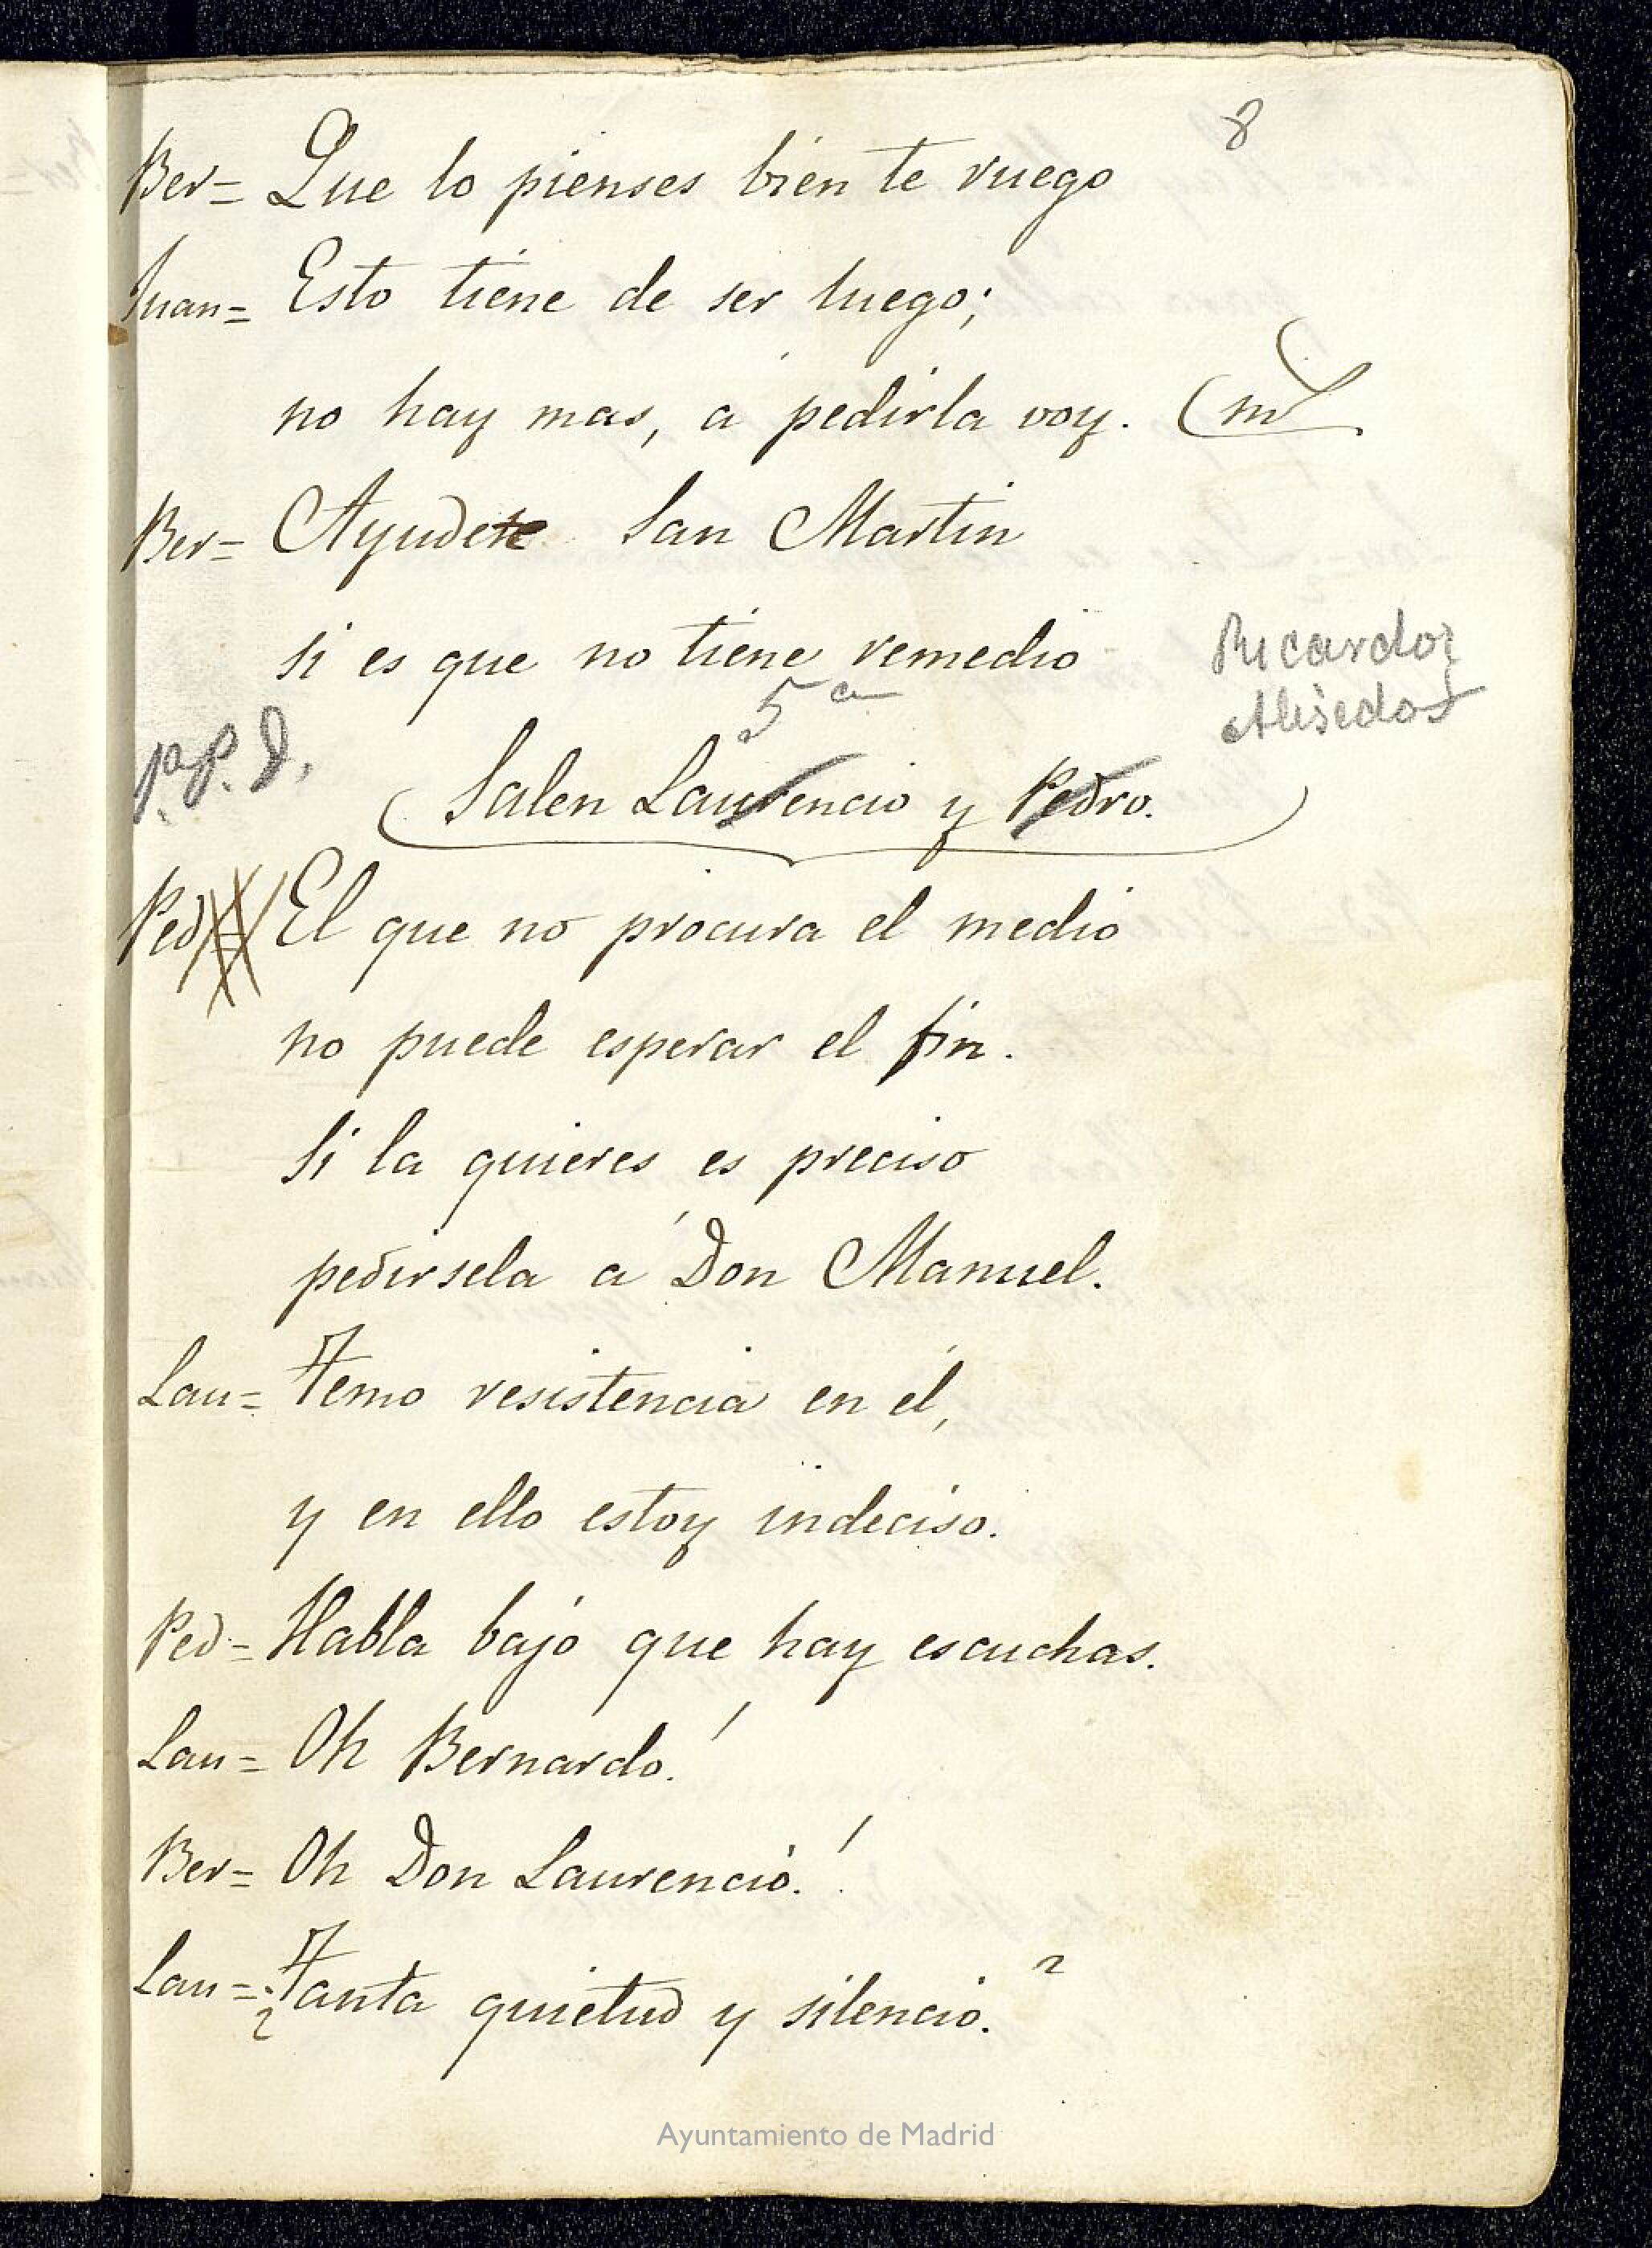 8
Ber= Que lo pienses bien te ruego
Juan= Esto tiene de ser luego;
no hay mas, a pedirla voy. (m
Ber= Ayudete San Martin
si es que no tiene remedio
Ricardo
5ª
P.P.D.
(Salen Laurencio y Pedro.)
Ped= El que no procura el medio
no puede esperar el fin.
Si la quieres es preciso
pedirsela á Don Manuel.
Lau= Temo resistencia en él,
y en ello estoy indeciso.
Ped= Habla bajo que hay escuchas.
Lau= Oh Bernardo!
Ber= Oh Don Laurencio!
Lau= ¿Tanta quietud y silencio?
Ayuntamiento de Madrid